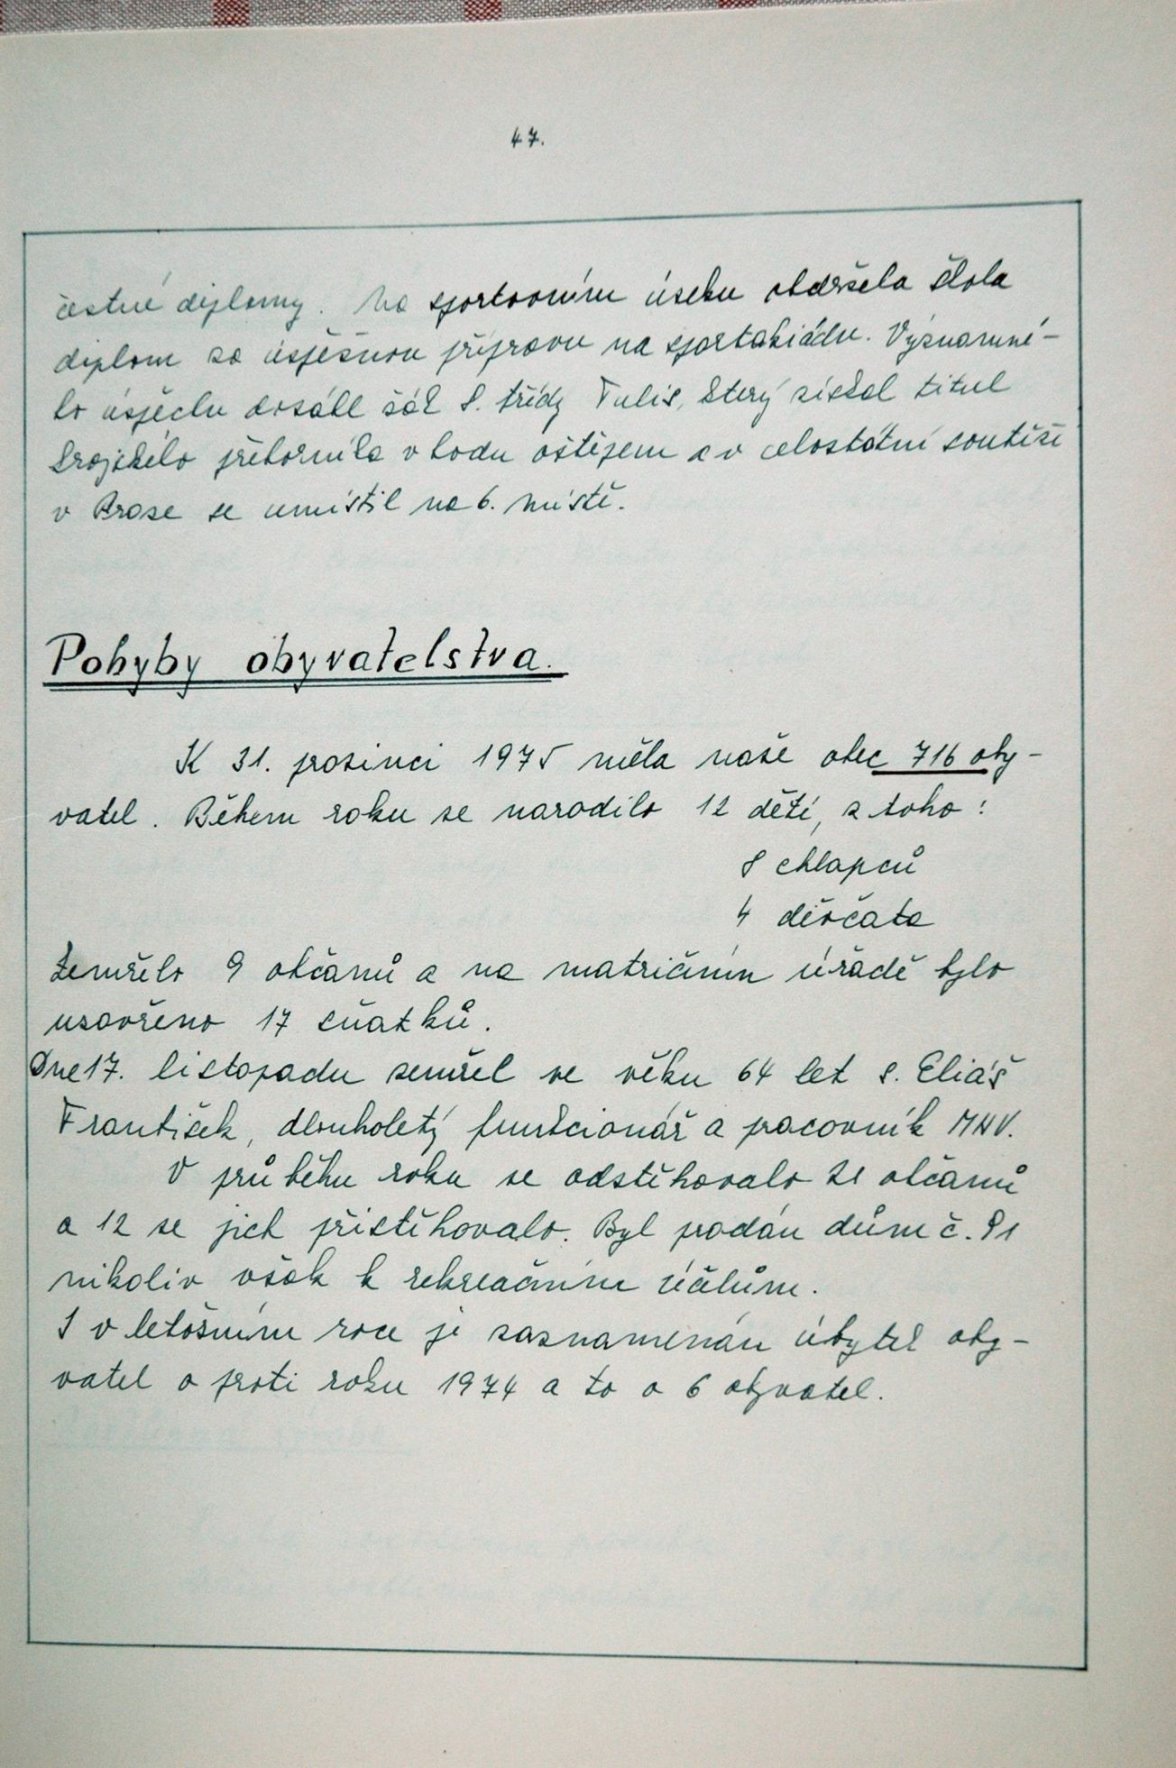 47.
čestné diplomy. Na sportovním úseku obdržela škola
diplom za úspěšnou přípravu na spartakiádu. Významné-
ho úspěchu dosáhl žák 8. třídy Tulis, který získal titul
krajského přeborníka v hodu oštěpem a v celostátní soutěži
v Praze se umístil na 6. místě.
Pohyby obyvatelstva.
K 31. prosinci 1975 měla naše obec 716 oby-
vatel. Během roku se narodilo 12 dětí, z toho:
8 chlapců
4 děvčata
Zemřelo 9 občanů a na matričním úřadě bylo
uzavřeno 17 sňatků.
Dne 17. listopadu zemřel ve věku 64 let s. Eliáš
František, dlouholetý funkcionář a pracovník MNV.
V průběhu roku se odstěhovalo 21 občanů
a 12 se jich přistěhovalo. Byl prodán dům č. 91
nikoliv však k rekreačním účelům.
I v letošním roce je zaznamenán úbytek oby-
vatel o proti roku 1974 a to o 6 obyvatel.